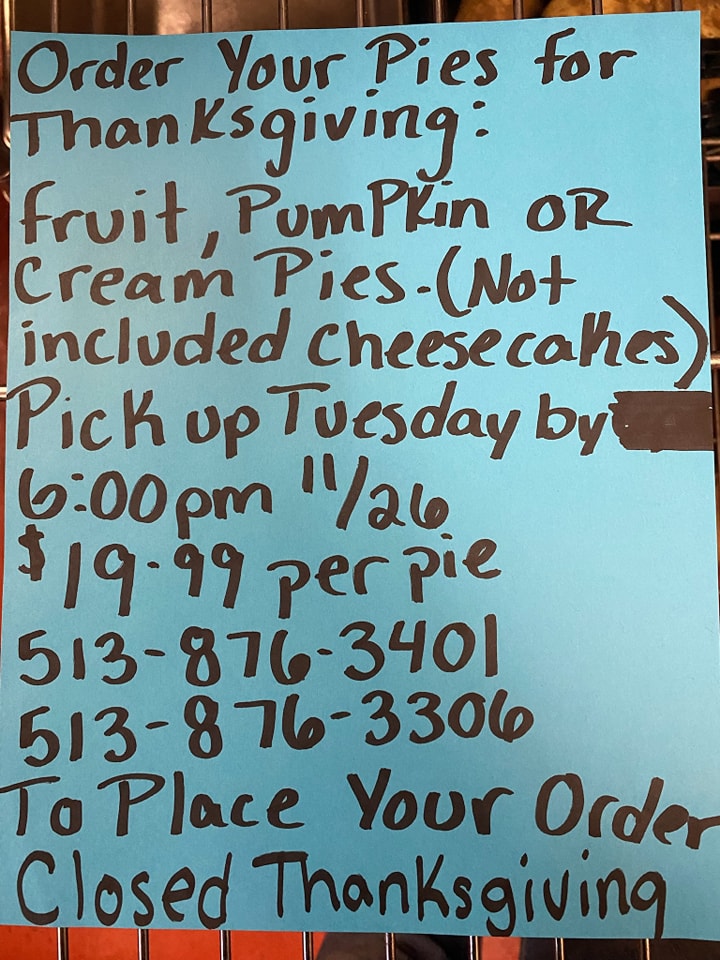 Order Your Pies for
Thanksgiving:
fruit, PumPKin OR
Cream Pies-(Not
included cheesecakes)
Pick up Tuesday by
6:00pm 11/26
$19.99 per pie
513-876-3401
513-876-3306
To Place Your Order
Closed Thanksgiving